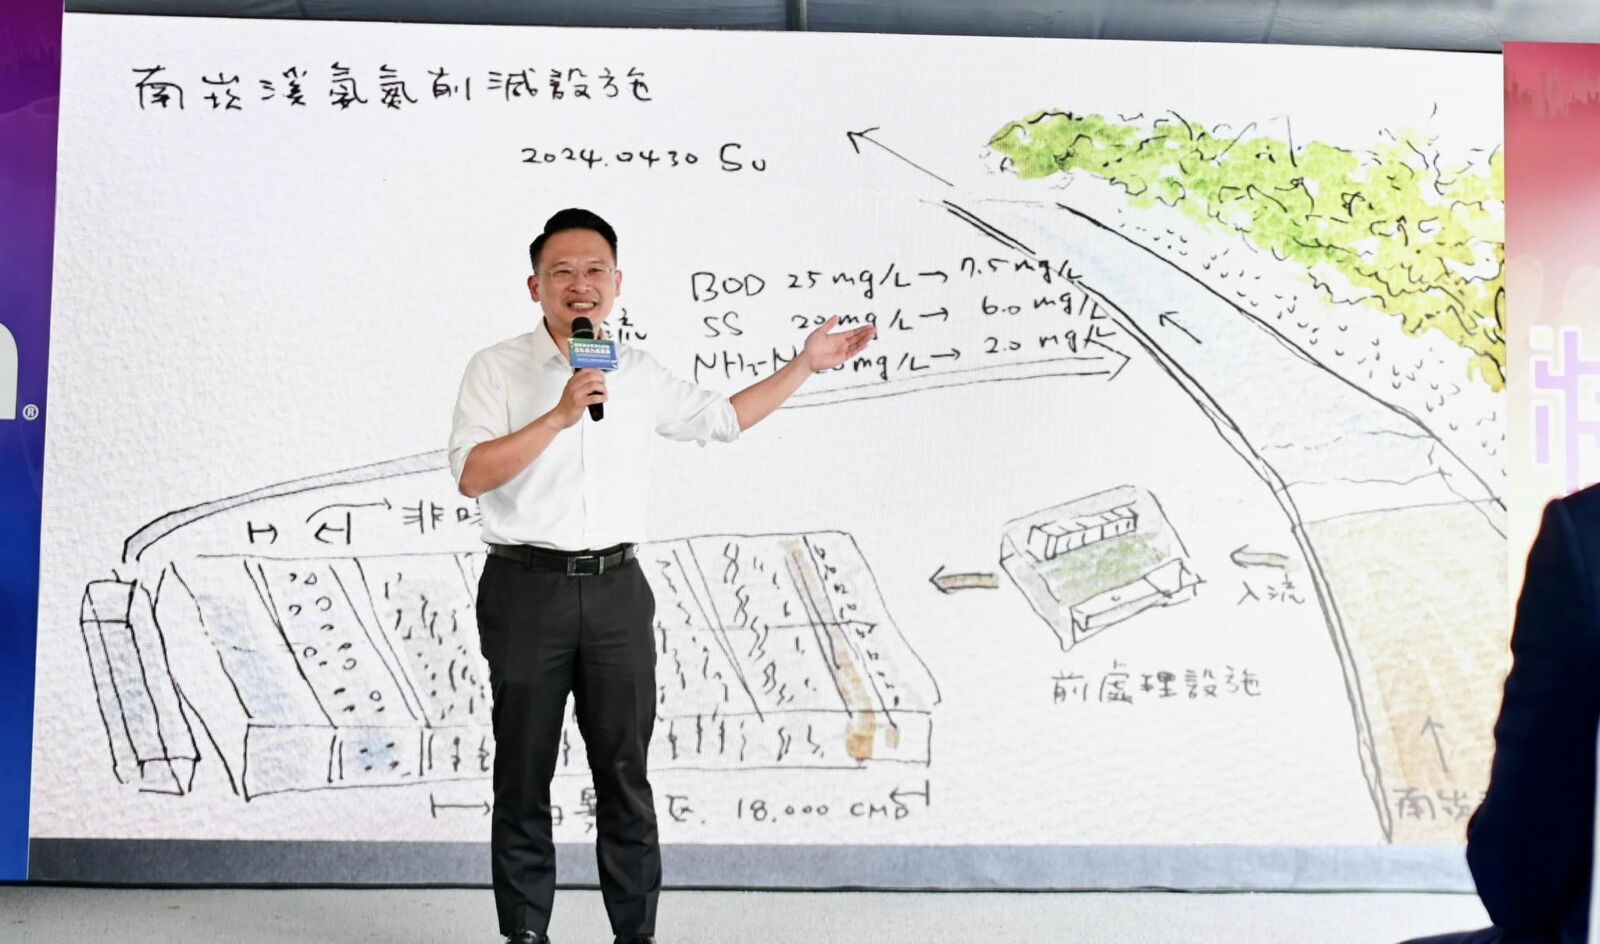 南崁溪氨氮削減設施
2024.0430 Su
BOD 25 mg/L → 7.5 mg/L
SS 20 mg/L → 6.0 mg/L
NH3-N mg/L → 2.0 mg/L
流
非曝
入流
前處理設施
18,000 CMD
南崁
®